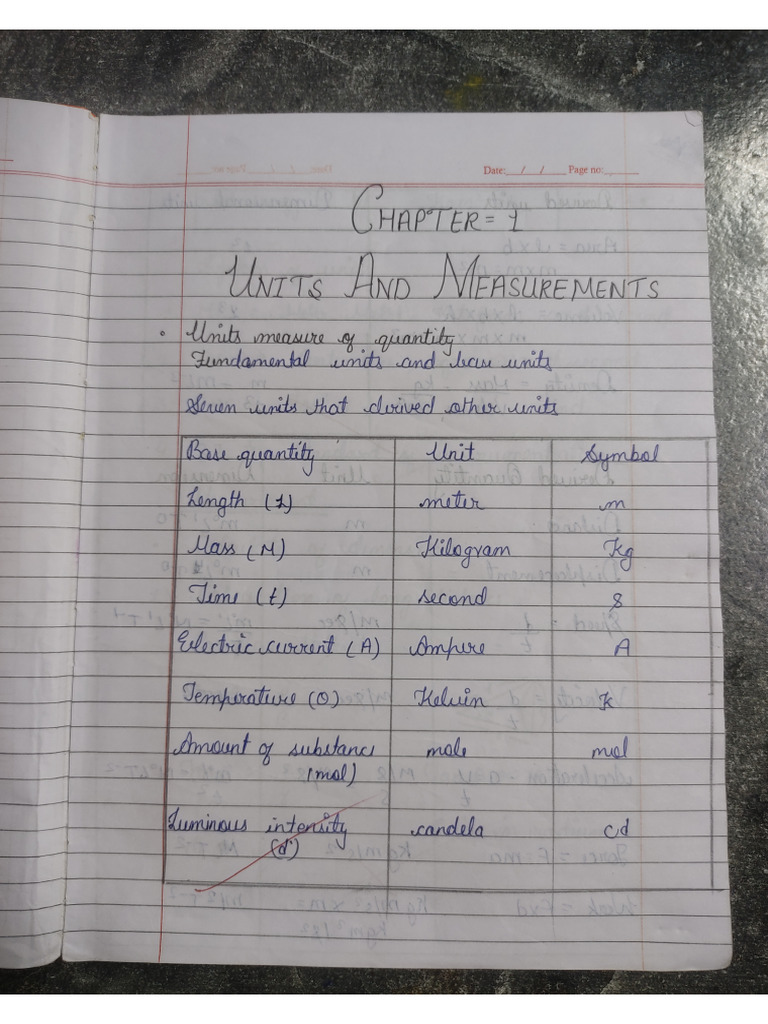 Date: / / Page no:
CHAPTER = 1
UNITS AND MEASUREMENTS
• Units measure of quantity
Fundamental units and base units
Seven units that derived other units
Base quantity Unit Symbol
Length (L) meter m
Mass (M) Kilogram Kg
Time (t) second s
Electric current (A) Ampere A
Temperature (θ) Kelvin K
Amount of substanc mole mol
(mol)
Luminous intensity candela cd
(d)